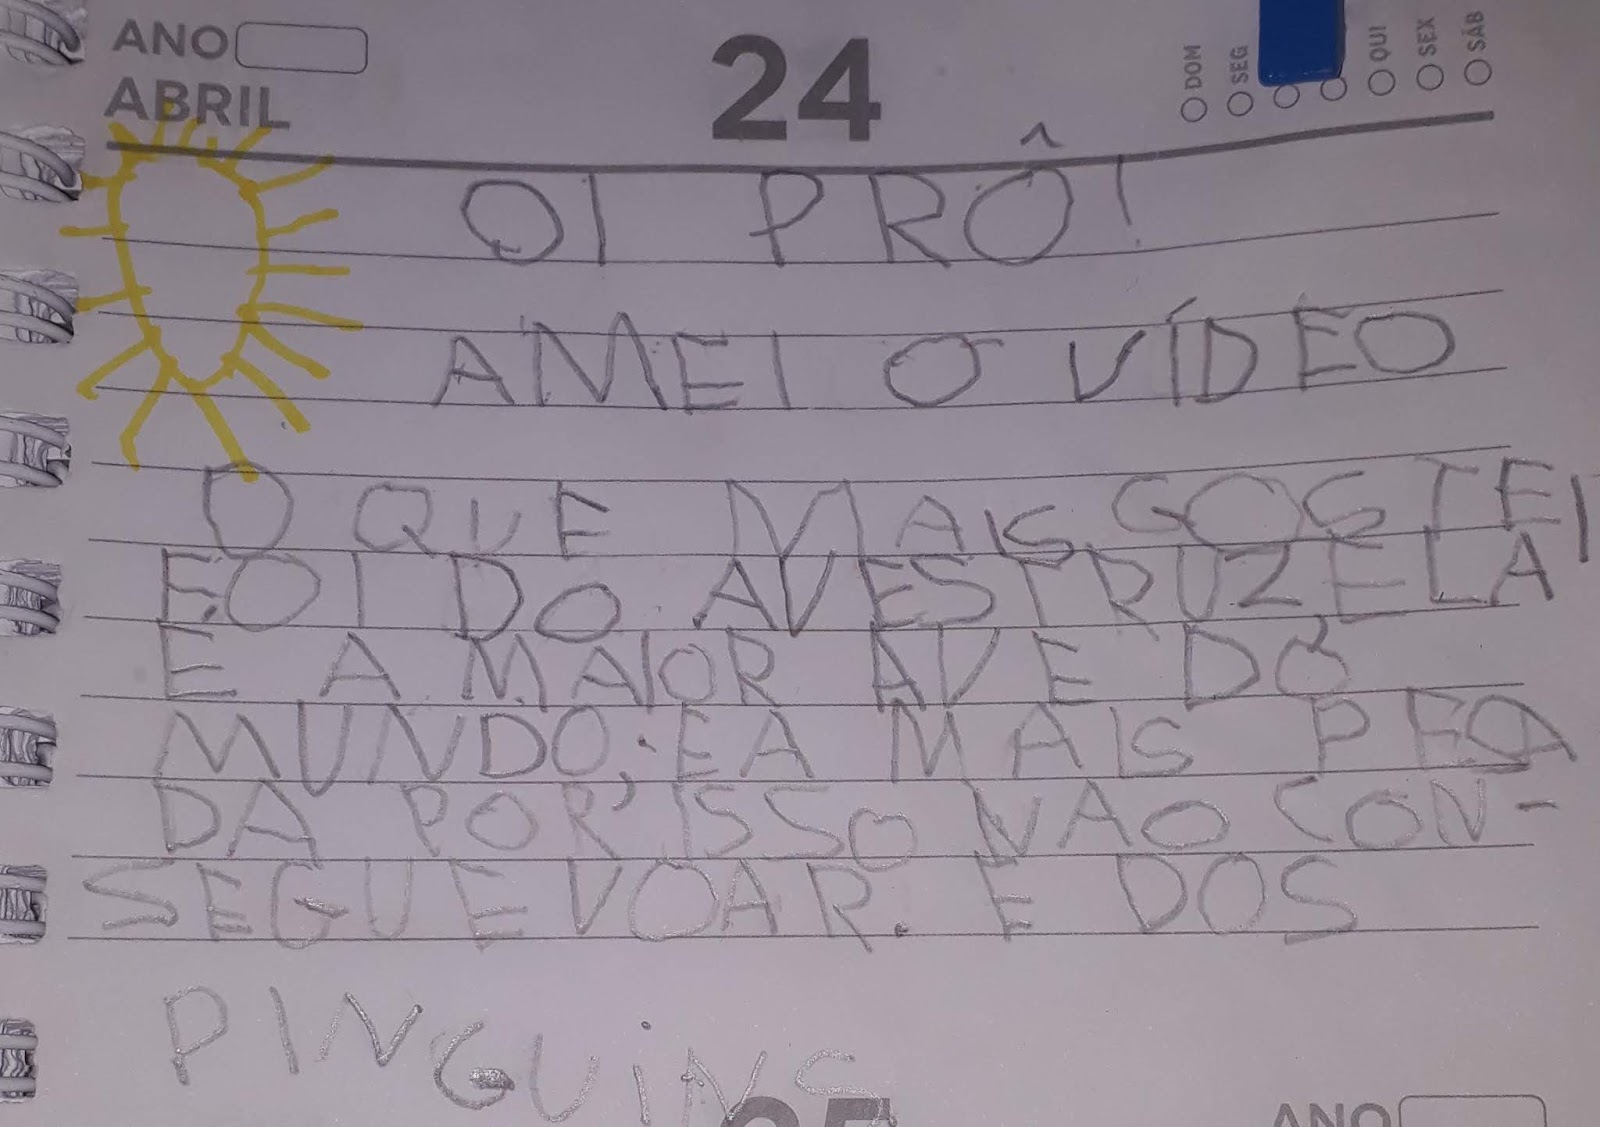 ANO
ABRIL
24
DOM SEG QUI SEX SÁB
OI PRÔ!
AMEI O VÍDEO
O QUE MAIS GOSTEI
FOI DO AVESTRUZ ELA
E A MAIOR AVE DO
MUNDO, E A MAIS PE
DA POR ISSO NAO CON-
SEGUE VOAR. E DOS
PINGUINS
25
ANO